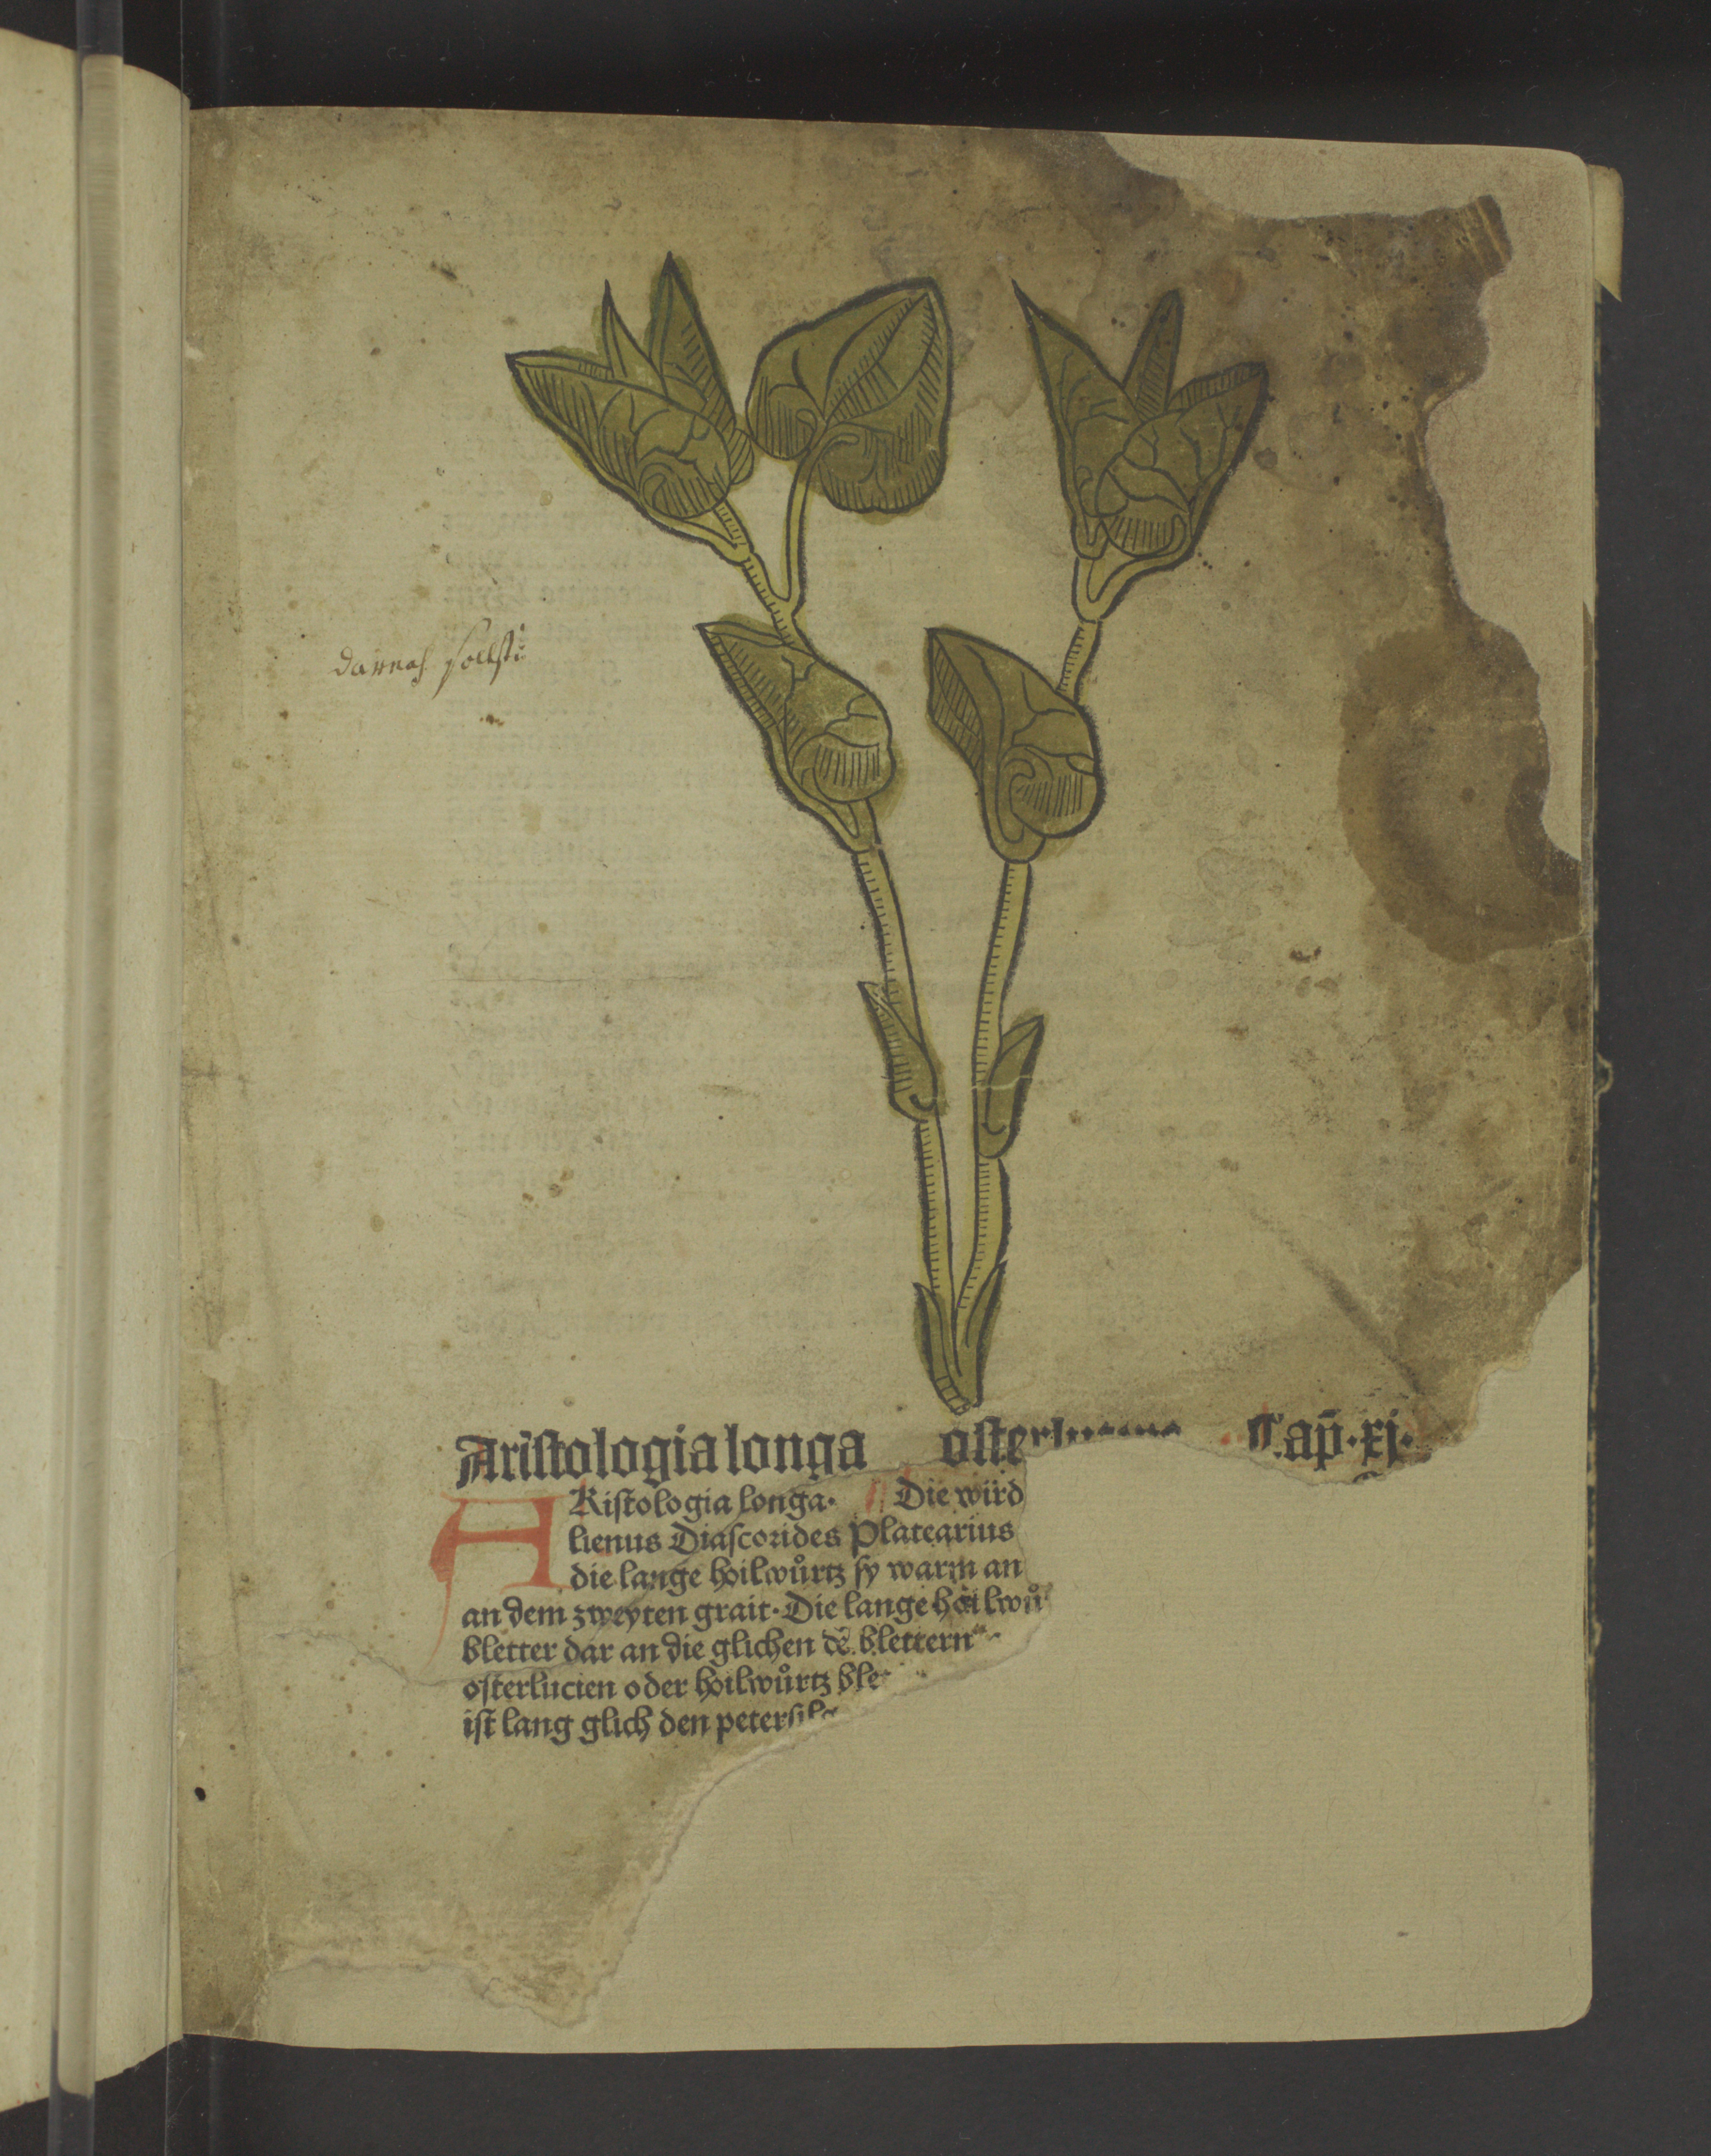 darnach sollstu
Aristologia longa oster Cap̄·xj·
ARistologia longa· Die wird
lienus Diascorides Platearius
die lange hoilwůrtz sy warm an
an dem zweyten grait· Die lange hoilwů
bletter dar an die glichen dē blettern
osterlucien oder hoilwůrtz ble
ist lang glich den petersil